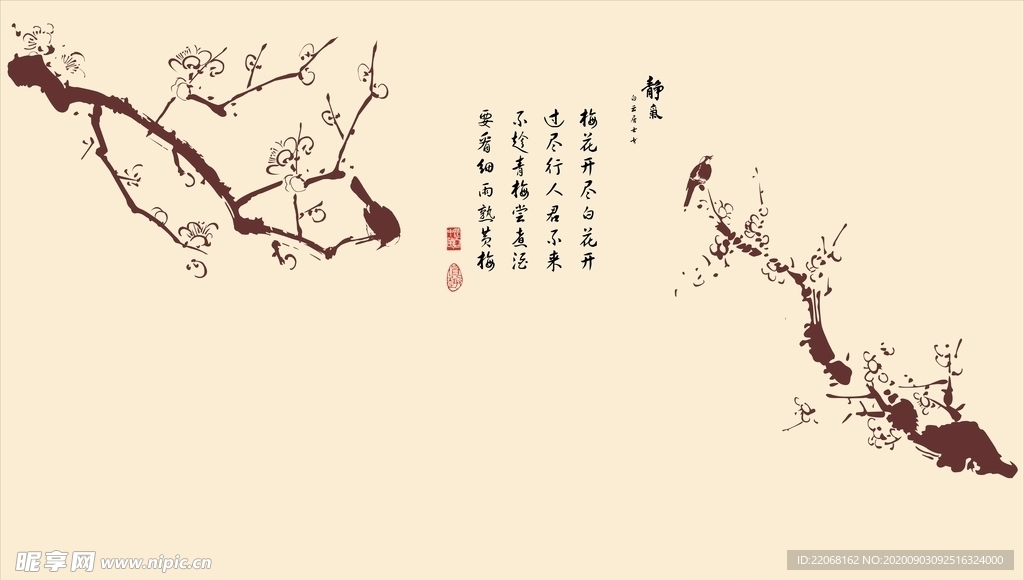 静氣
梅花开尽白花开
过尽行人君不来
不趁青梅尝煮酒
要看细雨熟黄梅
昵享网 www.nipic.cn
ID:22068162 NO:20200903092516324000